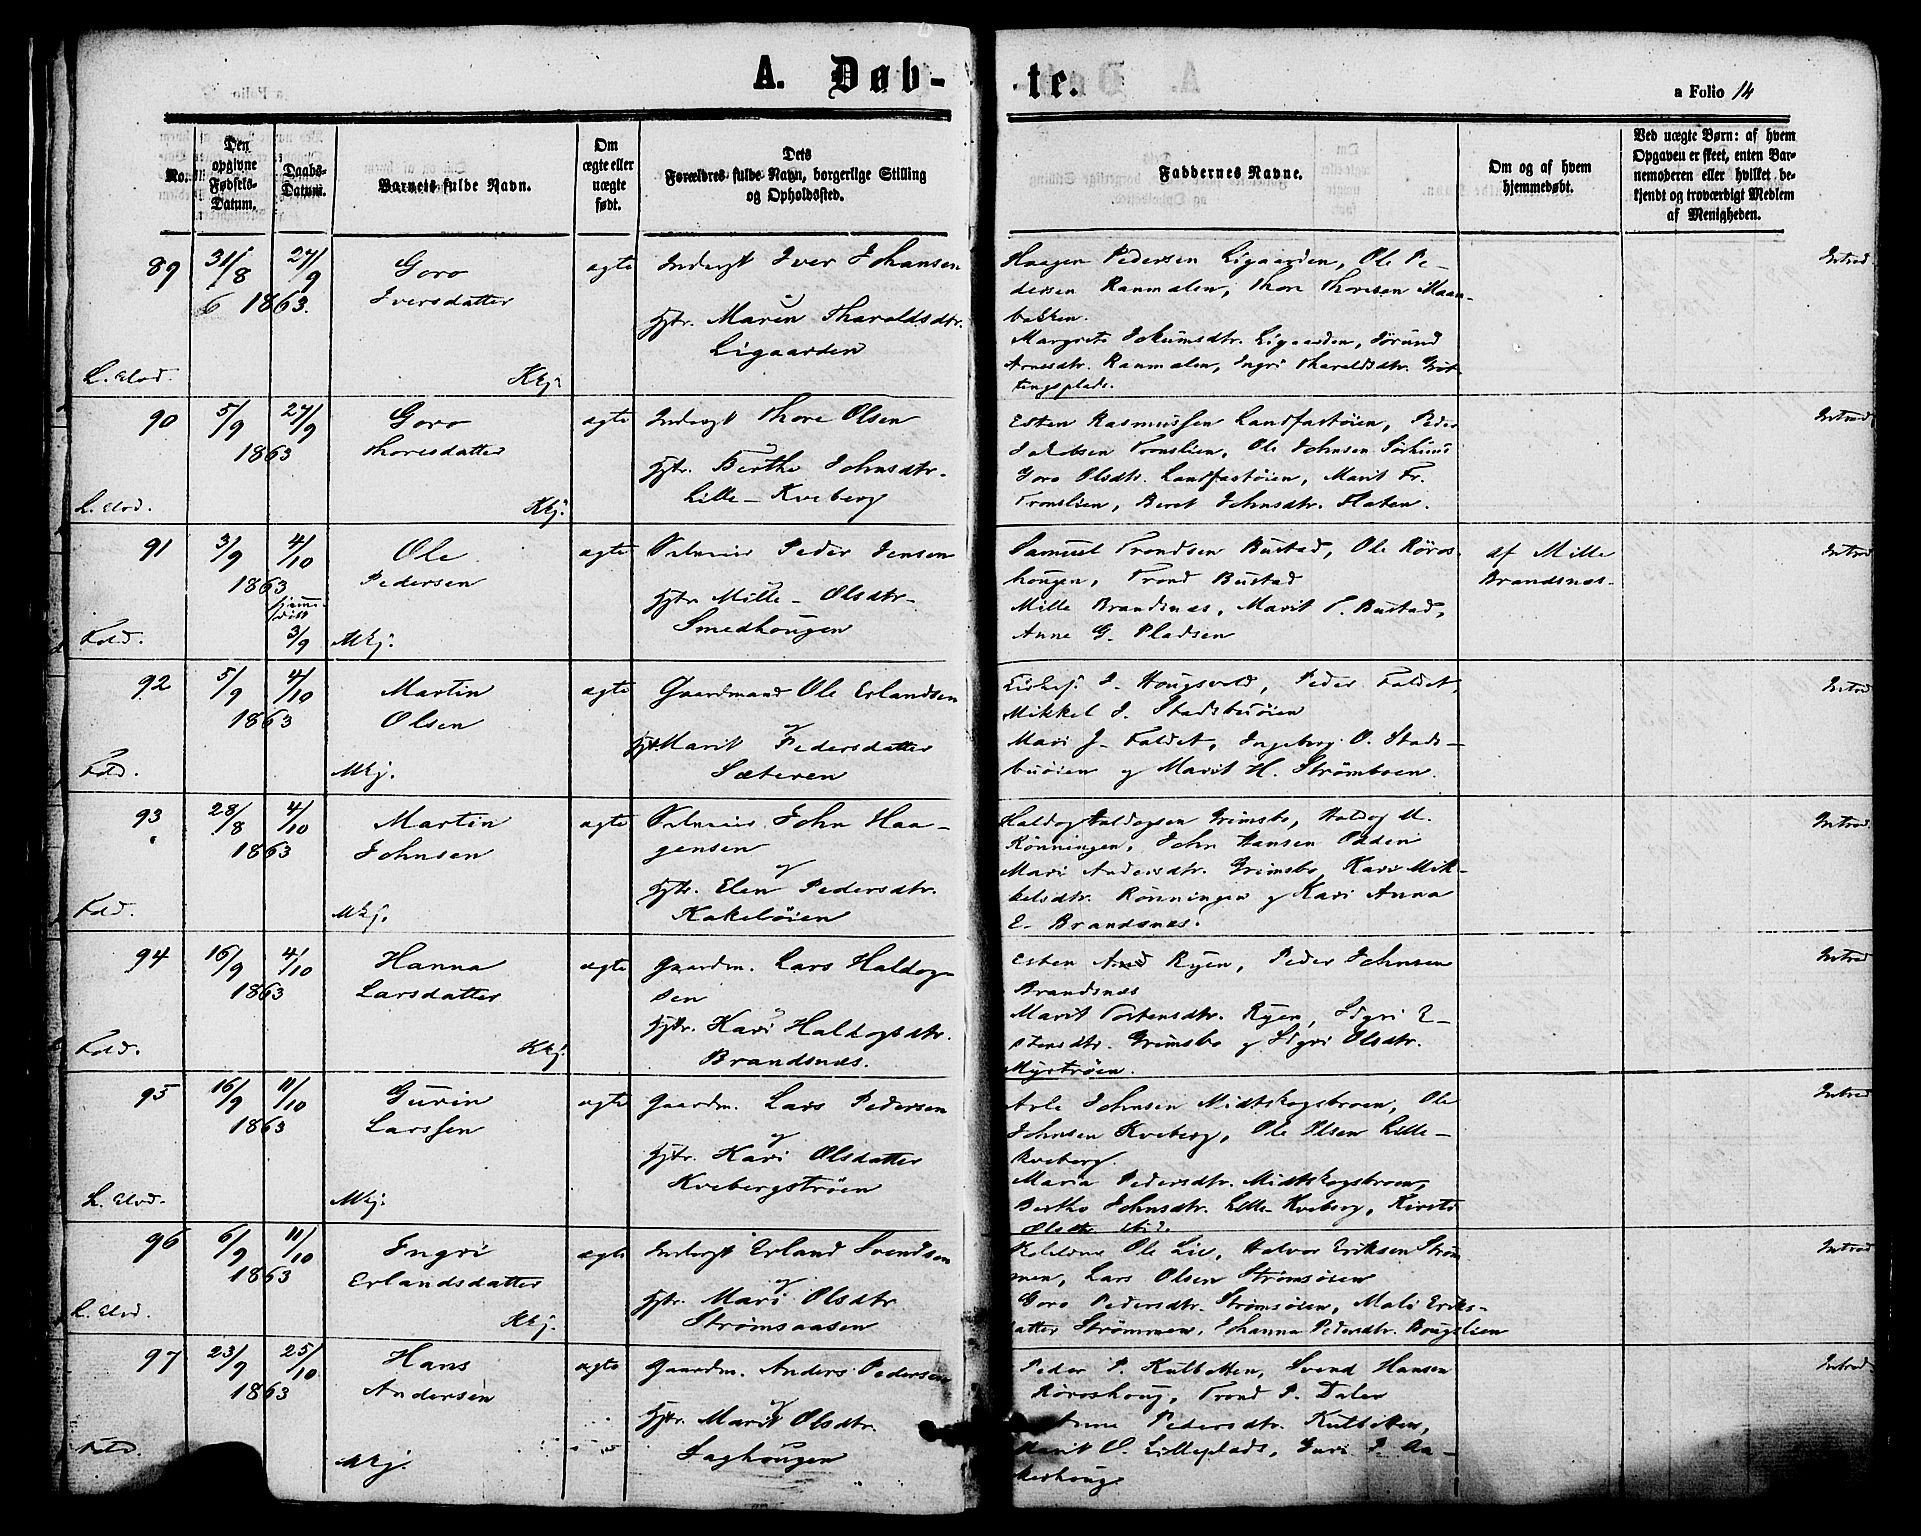 A. Døb-
te.
a Folio 14
No.
Den opgivne Fødsels-Datum.
Daabs-Datum.
Barnets fulde Navn.
Om ægte eller uægte født.
Dets Forældres fulde Navn, borgerlige Stilling og Opholdssted.
Faddernes Navne.
Om og af hvem hjemmedøbt.
Ved uægte Børn: af hvem Opgaven er skeet, enten Barnemoderen eller hvilket bekjendt og troværdigt Medlem af Menigheden.
89 31/8 27/9 1863.
Goro
Iversdatter
Kkj.
ægte
Indergt Iver Johansen
og
Hstr. Maren Tharaldsdtr.
Ligaarden
Haagen Pedersen Ligaarden, Ole Pe-
dersen Ranmælen, Thore Thoresen Maan-
bakken.
Margrete Jokumsdtr. Ligaarden, Jørund
Arnesdtr. Ranmælen, Ingri Tharaldsdtr. Grøt-
tingsplads.
Introd
L. Elvd.
90 5/9 27/9 1863
Goro
Thoresdatter
Kkj.
ægte
Indergt Thore Olsen
og
Hstr. Berthe Johnsdtr.
Lille-Kveberg
Esten Rasmussen Landfastøien, Peder
Jakobsen Tronslien, Ole Johnsen Sørhuus
Goro Olsdtr. Landfastøien, Marit Fr.
Tronslien, Beret Johnsdtr. Flaten.
Introd
L. Elvd.
91 3/9 4/10 1863
hjemmedøbt
3/9
Ole
Pedersen
Mkj.
ægte
Selveier Peder Jensen
Hstr Mille Olsdtr.
Smedhougen
Samuel Trondsen Bustad, Ole Røros-
hougen, Trond Bustad
Mille Brandsnæs, Marit T. Bustad,
Anne G. Pladsen
af Mille
Brandsnæs.
Introd
Fold.
92 5/9 4/10 1863
Martin
Olsen
Mkj.
ægte
Gaardmand Ole Erlandsen
og
Hstr Marit Pedersdatter
Sæteren
Kirkesj. J. Hougsvold, Peder Faldet,
Mikkel J. Stadsbuøien
Mari J. Faldet, Ingeborg O. Stads-
buøien og Marit H. Strømboen.
Introd
Fold.
93 28/8 4/10 1863
Martin
Johnsen
Mkj.
ægte
Selveier John Haa-
gensen
og
Hstr. Elen Pedersdtr.
Kakeløien
Haldog Haldogsen Grimsbo, Haldog M.
Rønningen, John Hansen Odden
Mari Andersdtr. Grimsbo, Kari Mik-
kelsdtr. Rønningen og Kari Anna
E. Brandsnæs.
Introd.
Fold.
94 16/9 4/10 1863
Hanna
Larsdatter
Kkj.
ægte
Gaardm. Lars Haldog-
sen
og
Hstr. Kari Haldogsdtr.
Brandsnæs.
Esten And Ryen, Peder Johnsen
Brandsnæs
Marit Tostensdtr. Ryen, Sigri E-
stensdtr. Grimsbo og Sigri Olsdtr.
Myrtrøen.
Introd
Fold.
95 16/9 11/10 1863
Gurin
Larssen
Mkj.
ægte
Gaardm. Lars Pedersen
og
Hstr. Kari Olsdatter
Kvebergstrøen
Arle Johnsen Midtskogsbroen, Ole
Johnsen Kveberg, Ole Olsen Lille-
Kveberg.
Maria Pedersdtr. Midtskogsbroen,
Berthe Johnsdtr. Lille-Kveberg, Kirsti
Olsdtr ibid.
Introd
L. Elvd.
96 6/9 11/10 1863
Ingri
Erlandsdatter
Kkj.
ægte
Indergt Erland Svendsen
og
Hstr. Mari Olsdtr.
Strømsaasen
Ole Lie, Halvor Eriksen Strøm-
men, Lars Olsen Strømsøien
Goro Pedersdtr. Strømsøien, Mali Eriks-
datter Strømmen, Johanna Pedersdtr. Bougslien
Introd
L. Elvd.
97 23/9 25/10 1863
Hans
Andersen
Mkj.
ægte
Gaardm. Anders Pedersen
og
Hstr. Marit Olsdtr.
Saghougen
Peder P. Kulbotten, Svend Hansen
Røroshoug, Trond P. Dalen
Anne Pedersdtr. Kulbotten,
Marit O. Lilleplads, Guri J. Aa-
kerhoug.
Introd
Fold.